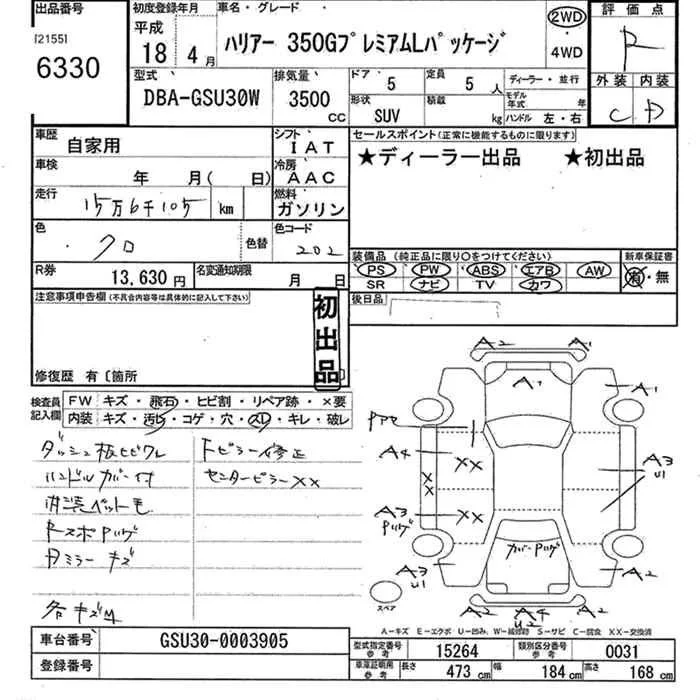 出品番号
[2155]
6330
初度登録年月
平成
18 4月
車名・グレード
ハリアー 350GプレミアムLパッケージ
2WD
・
4WD
評価点
R
外装 内装
C D
型式
DBA-GSU30W
排気量
3500
CC
ドア
5
定員
5 人
形状
SUV
積載
kg
ディーラー・並行
モデル年式 年
ハンドル 左・右
車歴
自家用
シフト
IAT
車検
年 月( 日)
冷房
AAC
走行
15万6千105 km
燃料
ガソリン
色
クロ
色替
色コード
202
R券
13,630 円
名変通知期限
月 日
セールスポイント(正常に機能するものに限ります)
★ディーラー出品 ★初出品
装備品(純正品に限り○をつけてください)
PS PW ABS エアB AW
SR ナビ TV カワ
新車保証書
有・無
後日品
注意事項申告欄(不具合内容等は具体的に記入して下さい)
初出品
修復歴 有〔箇所
検査員記入欄
FW キズ・飛石・ヒビ割・リペア跡・×要
内装 キズ・汚レ・コゲ・穴・スレ・キレ・破レ
ダッシュ板ヒビワレ
ハンドルカバー付
内装ペット毛
RスポPリンゲ
各キズ凹
Fピラー修正
センターピラーXX
A2 A1
A1 A1
A4 XX
A3 XX
A3
U1
XX
A3
U1
A2
A2 A4 A2
U2
スペア
A-キズ E-エクボ U-凹ミ W-補修跡 S-サビ C-腐食 XX-交換済
車台番号
GSU30-0003905
登録番号
型式指定番号
参考
15264
類別区分番号
参考
0031
車庫証明用
参考
長さ 473 cm 幅 184 cm 高さ 168 cm